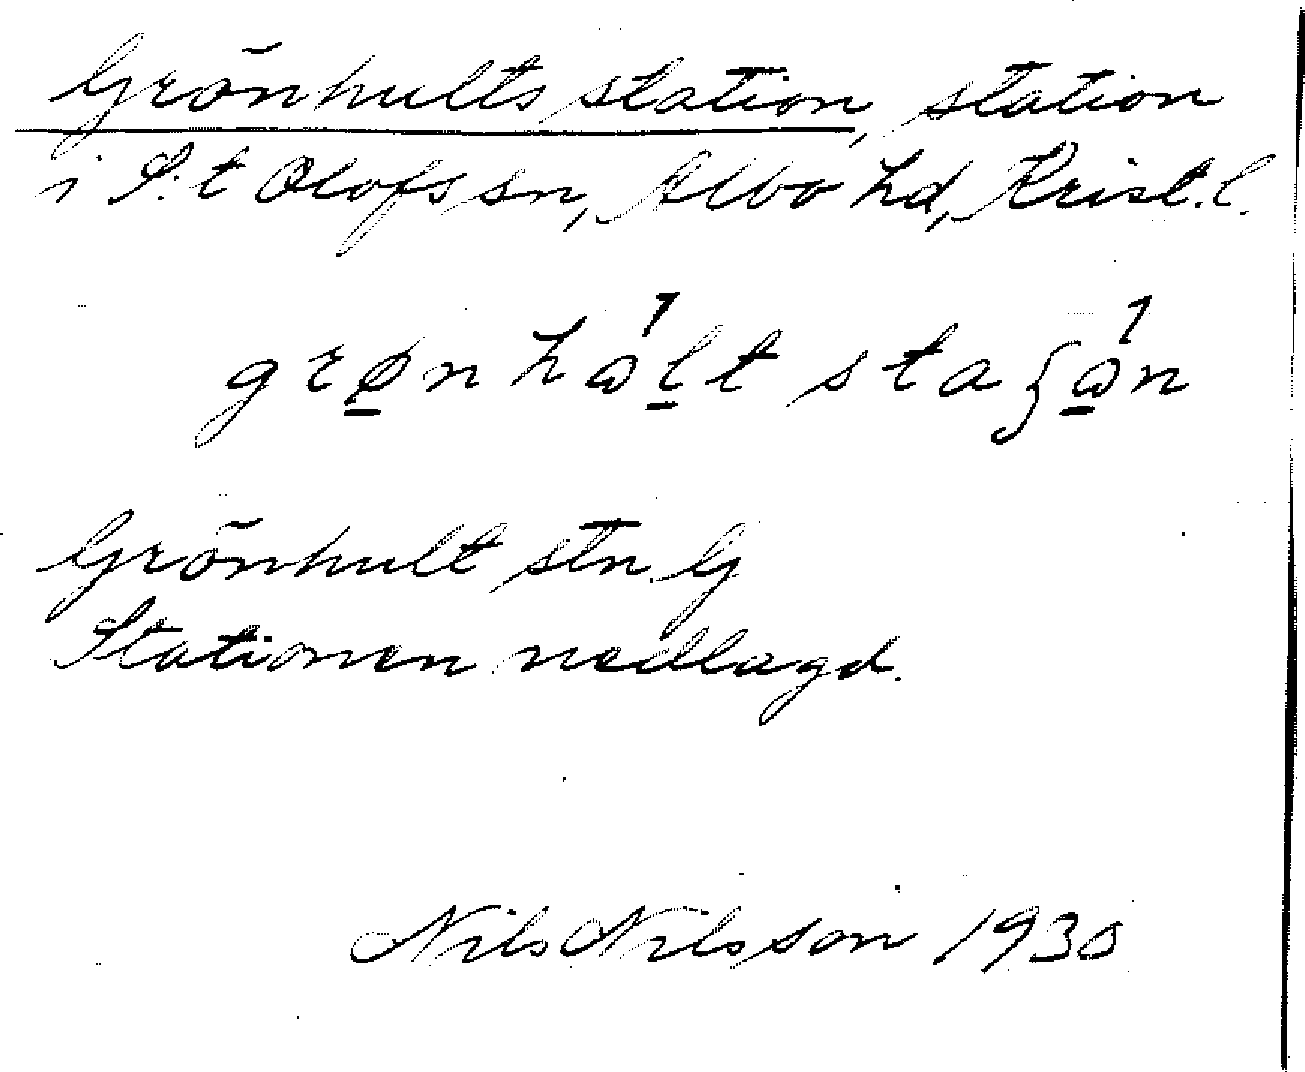 Grönhults station, station
i S:t Olofs sn, Albo hd, Krist. l.
Grönhult stn. G
Stationen nedlagd.
Nils Nilsson 1930